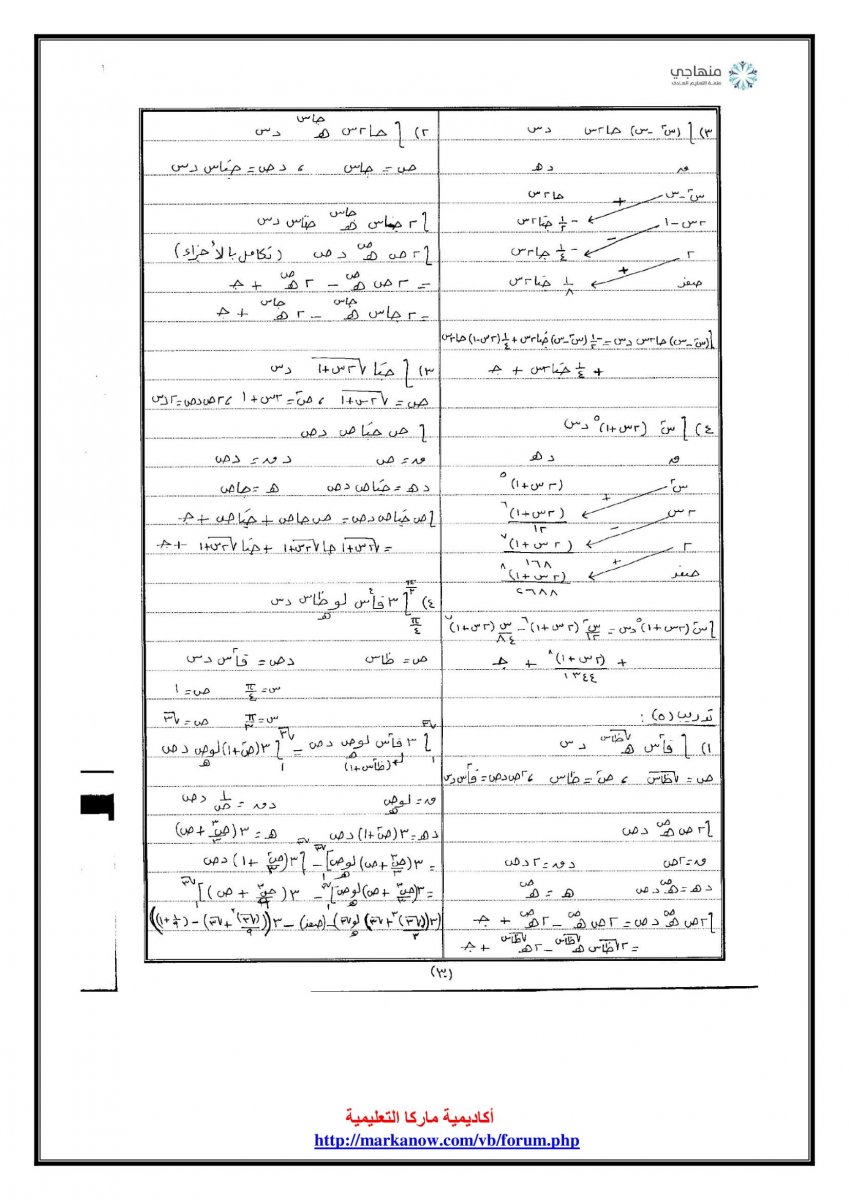 منهاجي
منصة التعليم الهادف
٣) ∫ (س² - س) جا٢س دس
ن دهـ
س² - س جا٢س
+
٢س - ١ -١/٢ جتا٢س
-
٢ -١/٤ جا٢س
+
صفر ١/٨ جتا٢س
∫(س² - س) جا٢س دس = -١/٢ (س² - س) جتا٢س + ١/٤ (٢س - ١) جا٢س
+ ١/٤ جتا٢س + جـ
٤) ∫ س² (٢س + ١)^٥ دس
ن دهـ
س² (٢س + ١)^٥
+
٢س (٢س + ١)^٦ / ١٢
-
٢ (٢س + ١)^٧ / ١٦٨
+
صفر (٢س + ١)^٨ / ٢٦٨٨
∫ س² (٢س + ١)^٥ دس = س²/١٢ (٢س + ١)^٦ - س/٨٤ (٢س + ١)^٧
+ (٢س + ١)^٨ / ١٣٤٤ + جـ
تدريب (٥) :
١) ∫ قا²س هـ^√ظاس دس
ص = √ظاس ، ص² = ظاس ، ٢ص دص = قا²س دس
∫ ٢ص هـ^ص دص
ن = ٢ص دن = ٢دص
دهـ = هـ^ص دص هـ = هـ^ص
∫ ٢ص هـ^ص دص = ٢ص هـ^ص - ٢هـ^ص + جـ
= ٢√ظاس هـ^√ظاس - ٢هـ^√ظاس + جـ
٢) ∫ جا٢س هـ^جاس دس
ص = جاس ، دص = جتاس دس
∫ ٢ جاس هـ^جاس جتاس دس
∫ ٢ص هـ^ص دص (تكامل بالأجزاء)
= ٢ص هـ^ص - ٢هـ^ص + جـ
= ٢جاس هـ^جاس - ٢هـ^جاس + جـ
٣) ∫ جتا √٢س+١ دس
ص = √٢س+١ ، ص² = ٢س + ١ ، ٢ص دص = ٢دس
∫ ص جتاص دص
ن = ص دن = دص
دهـ = جتاص دص هـ = جاص
∫ ص جتاص دص = ص جاص + جتاص + جـ
= √٢س+١ جا√٢س+١ + جتا√٢س+١ + جـ
٤) ∫ ٣ قا⁴س لو ظاس دس
ص = ظاس دص = قا²س دس
س = π/٤ ص = ١
س = π/٣ ص = √٣
∫ ٣ قا²س لوص دص = ∫ ٣(ص² + ١) لوص دص
(ظا²س + ١)
ن = لوص دن = ١/ص دص
دهـ = ٣(ص² + ١) دص هـ = ٣(ص³/٣ + ص)
= ٣(ص³/٣ + ص) لوص] - ∫ ٣(ص²/٣ + ١) دص
= ٣(ص³/٣ + ص) لوص] - ٣(ص³/٩ + ص)]
(٣((√٣)³/٣ + √٣) لو√٣) - (صفر) - ٣(((√٣)³/٩ + √٣) - (١/٩ + ١))
(٣٠)
أكاديمية ماركا التعليمية
http://markanow.com/vb/forum.php